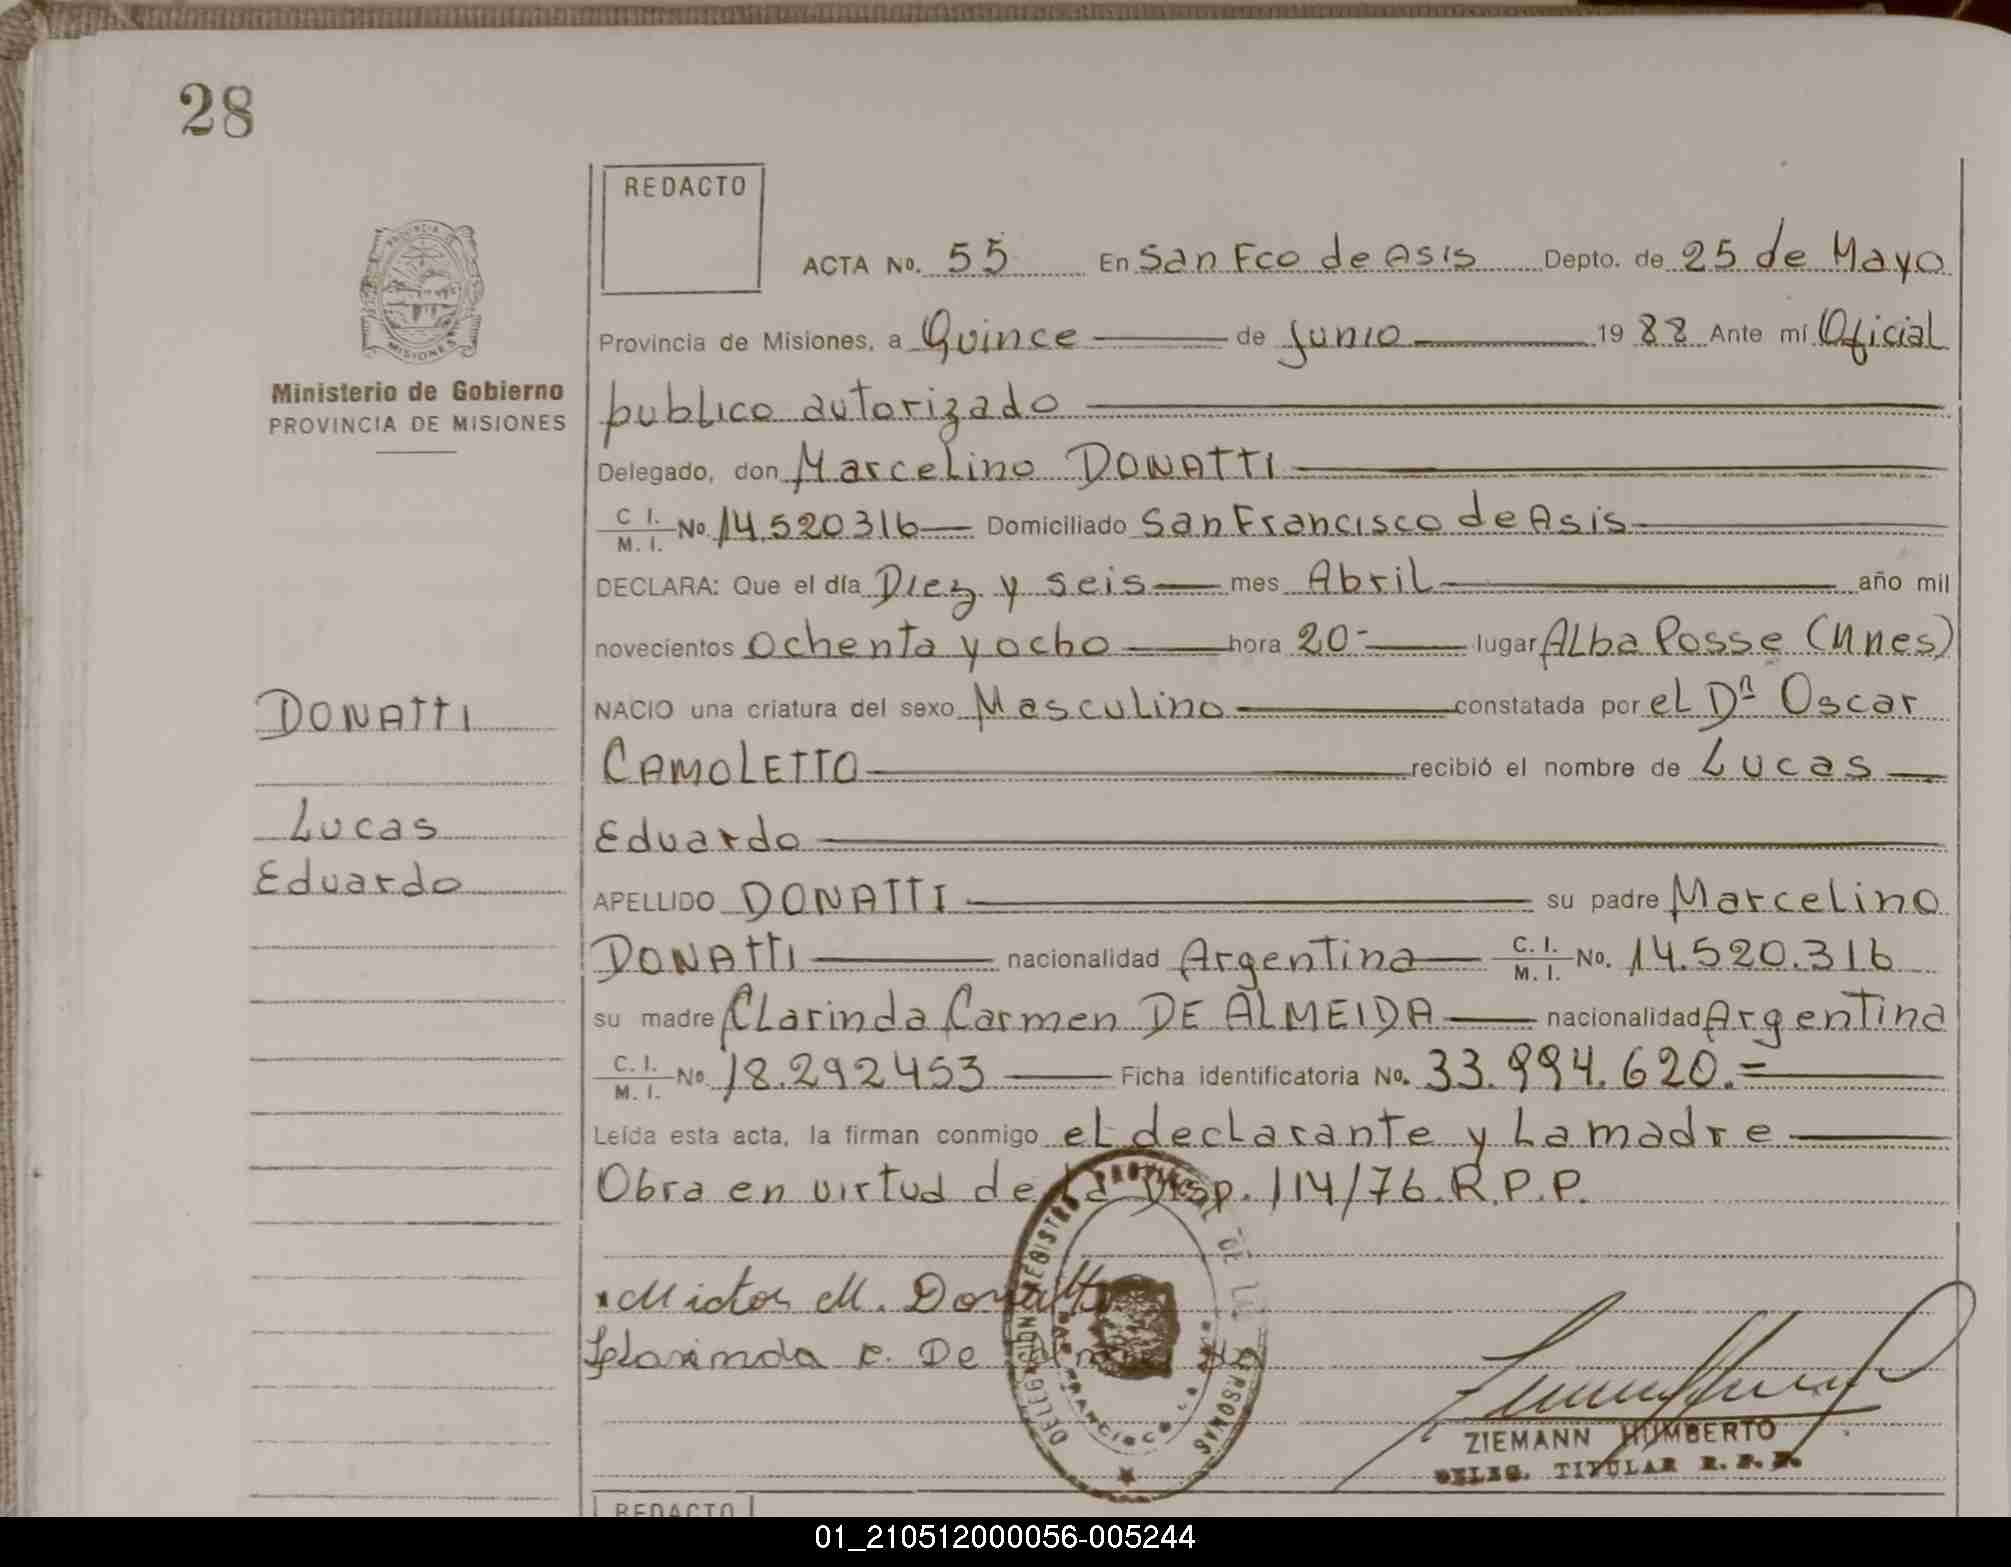 28
REDACTO
ACTA No. 55 En San Fco de Asis Depto. de 25 de Mayo
Provincia de Misiones, a Quince de Junio 1988 Ante mí Oficial
publico autorizado
Delegado, don Marcelino DONATTI
C. I. / M. I. No. 14.520316 Domiciliado San Francisco de Asis
DECLARA: Que el día Diez y seis mes Abril año mil
novecientos ochenta y ocho hora 20- lugar Alba Posse (Mnes)
NACIO una criatura del sexo Masculino constatada por el Dr Oscar
CAMOLETTO recibió el nombre de Lucas
Eduardo
APELLIDO DONATTI su padre Marcelino
DONATTI nacionalidad Argentina C. I. / M. I. No. 14.520.316
su madre Clarinda Carmen DE ALMEIDA nacionalidad Argentina
C. I. / M. I. No. 18.292453 Ficha identificatoria No. 33.994.620.=
Leída esta acta, la firman conmigo el declarante y la madre
Obra en virtud de la Disp. 114/76 R.P.P.
M. Donatti
C. De
DELEGACION REGISTRO PROVINCIAL DE LAS PERSONAS
FRANCISCO DE ASIS
ZIEMANN HUMBERTO
DELEG. TITULAR R. P. P.
PROVINCIA DE
MISIONES
Ministerio de Gobierno
PROVINCIA DE MISIONES
DONATTI
Lucas
Eduardo
REDACTO
01_210512000056-005244